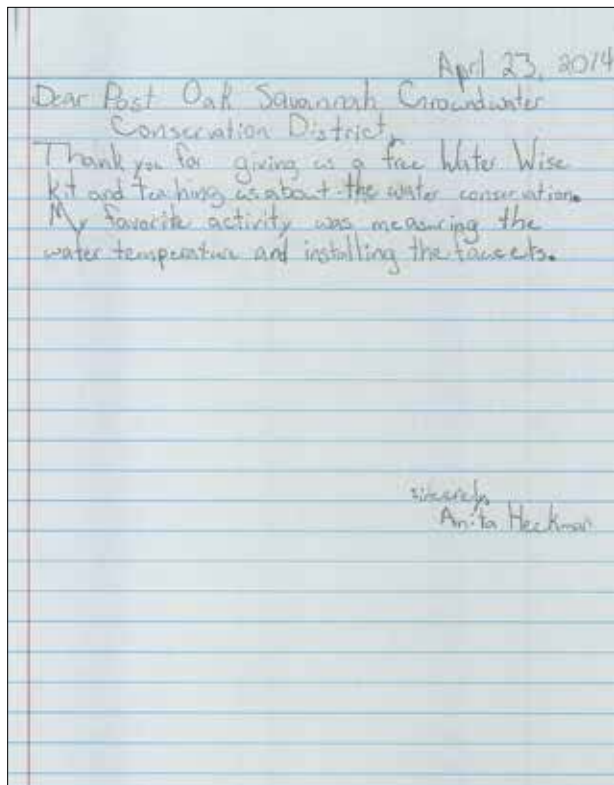 April 23, 2014
Dear Post Oak Savannah Groundwater
Conservation District,
Thank you for giving us a free Water Wise
kit and teaching us about the water conservation.
My favorite activity was measuring the
water temperature and installing the faucets.
sincerely,
Anita Heckman